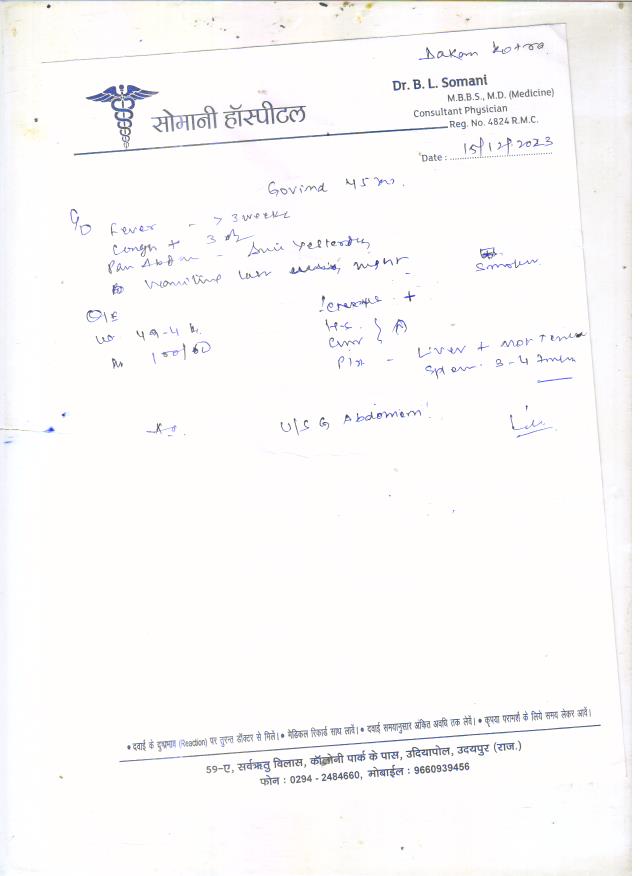 Dakan Kotra
Dr. B. L. Somani
M.B.B.S., M.D. (Medicine)
Consultant Physician
Reg. No. 4824 R.M.C.
सोमानी हॉस्पीटल
Date : 15/12/2023
Govind 45
C/O Fever - > 3 weeks
Cough +
Pain Abdn - Since Yesterday
Vomiting last night
Smoker
O/E
Icterus +
49-4 k
100/60
P/A - Liver + Not Tender
Spleen 3-4
U/S G Abdomen
• दवाई के दुष्प्रभाव (Reaction) पर तुरन्त डॉक्टर से मिलें। • मेडिकल रिकार्ड साथ लावें। • दवाई समयानुसार अंकित अवधि तक लेवें। • कृपया परामर्श के लिये समय लेकर आवें।
59-ए, सर्वऋतु विलास, कॉलोनी पार्क के पास, उदियापोल, उदयपुर (राज.)
फोन : 0294 - 2484660, मोबाईल : 9660939456